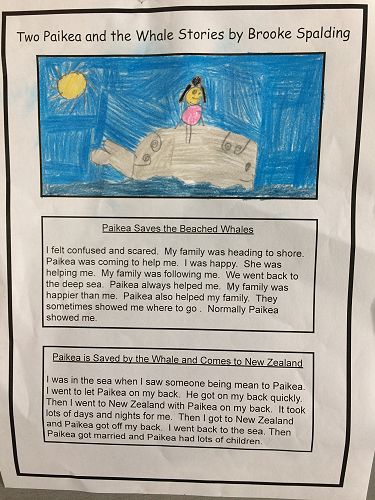 Two Paikea and the Whale Stories by Brooke Spalding
Paikea Saves the Beached Whales
I felt confused and scared. My family was heading to shore.
Paikea was coming to help me. I was happy. She was
helping me. My family was following me. We went back to
the deep sea. Paikea always helped me. My family was
happier than me. Paikea also helped my family. They
sometimes showed me where to go . Normally Paikea
showed me.
Paikea is Saved by the Whale and Comes to New Zealand
I was in the sea when I saw someone being mean to Paikea.
I went to let Paikea on my back. He got on my back quickly.
Then I went to New Zealand with Paikea on my back. It took
lots of days and nights for me. Then I got to New Zealand
and Paikea got off my back. I went back to the sea. Then
Paikea got married and Paikea had lots of children.